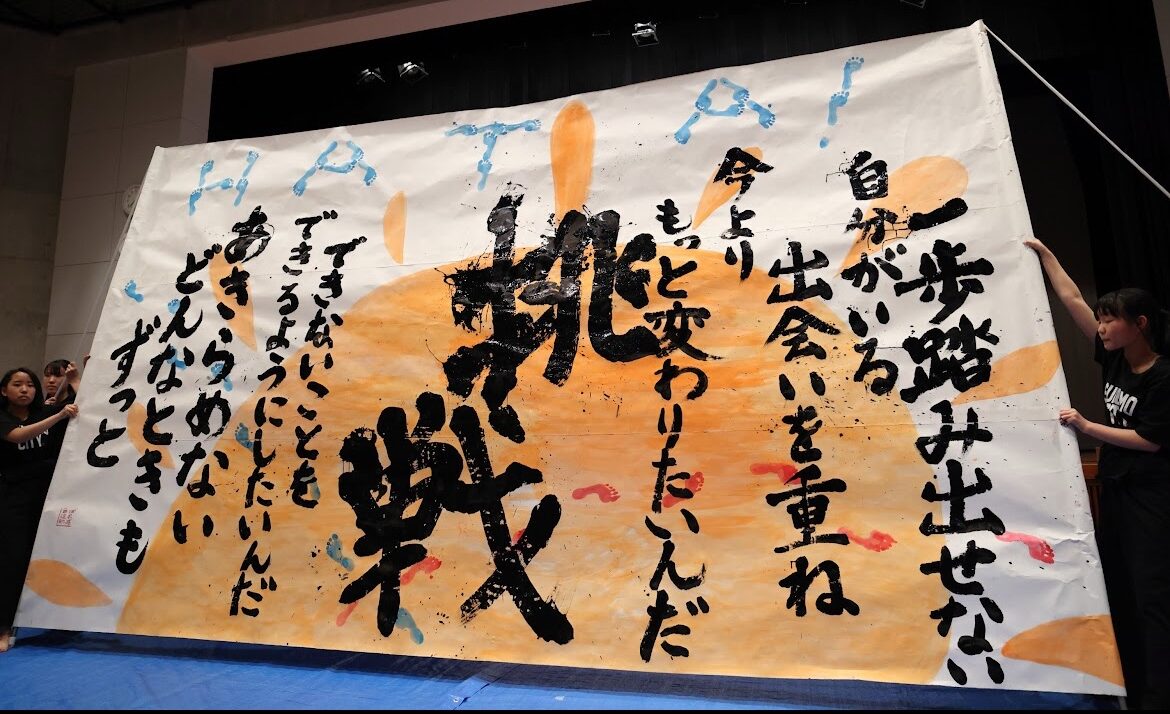 HATA!
一歩踏み出せない
自分がいる
出会いを重ね
今より
もっと変わりたいんだ
挑戦
できないことも
できるようにしたいんだ
あきらめない
どんなときも
ずっと
CITY